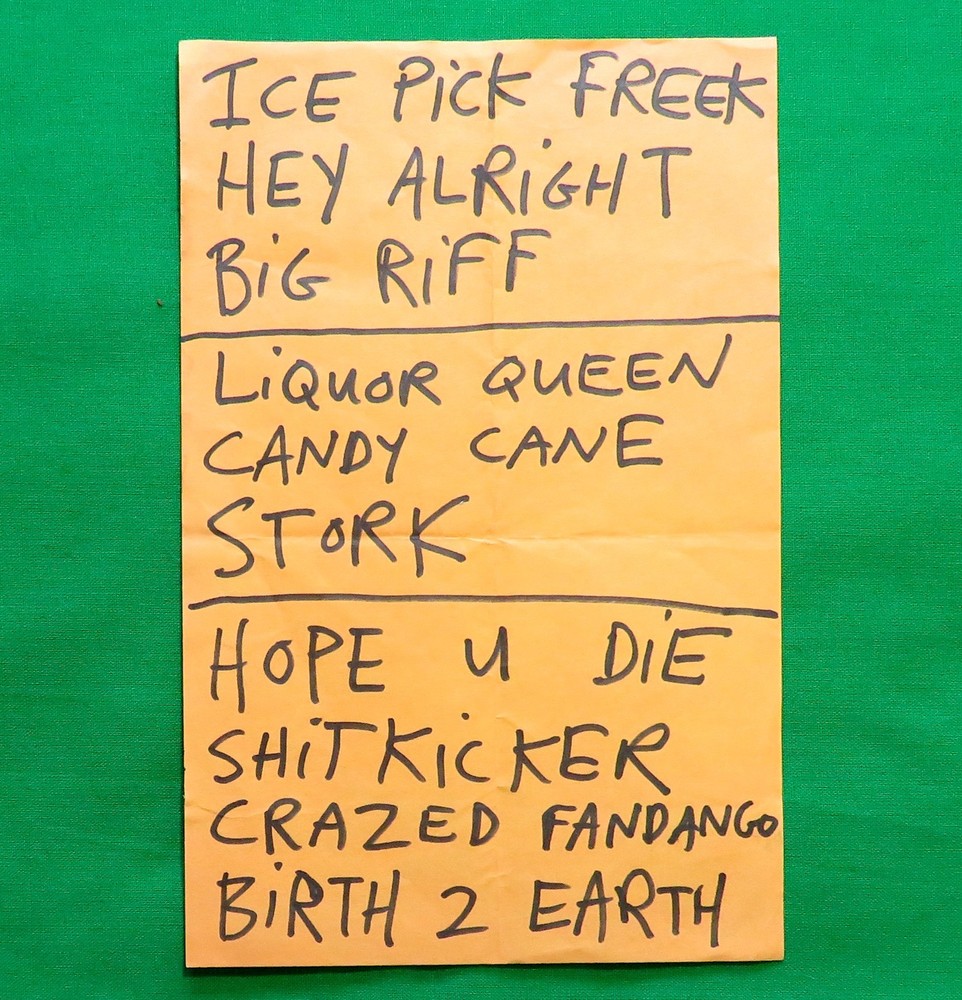 ICE PiCK FREEK
HEY ALRiGHT
BiG RiFF
LiQUOR QUEEN
CANDY CANE
STORK
HOPE U DiE
SHiTKiCKER
CRAZED FANDANGO
BiRTH 2 EARTH